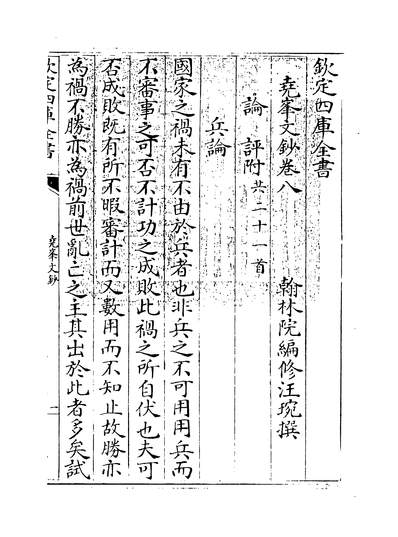 欽定四庫全書
堯峯文鈔卷八
翰林院編修汪琬撰
論 評附共二十一首
兵論
國家之禍未有不由於兵者也非兵之不可用用兵而
不審事之可否不計功之成敗此禍之所自伏也夫可
否成敗既有所不暇審計而又數用而不知止故勝亦
為禍不勝亦為禍前世亂亡之主其出於此者多矣試
欽定四庫全書
堯峯文鈔